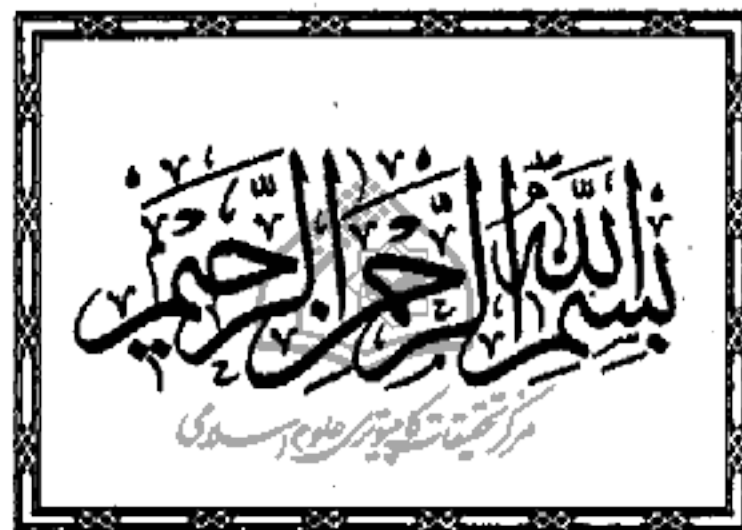 بسم الله الرحمن الرحیم
مرکز تحقیقات کامپیوتری علوم اسلامی